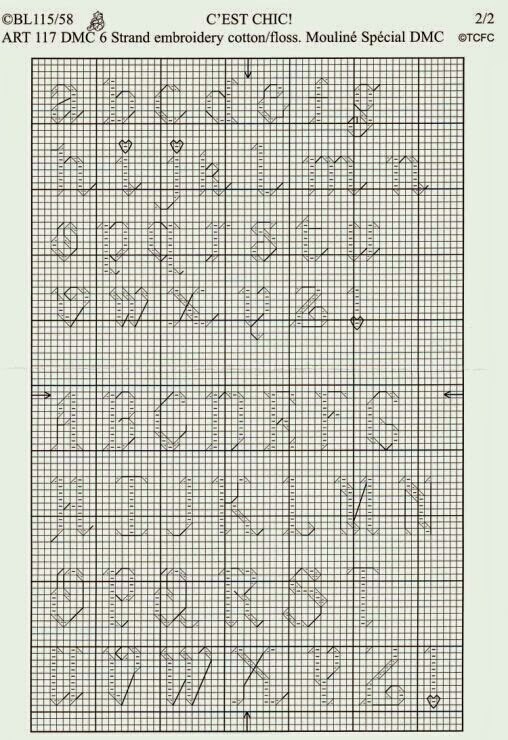 ©BL115/58 C'EST CHIC! 2/2
ART 117 DMC 6 Strand embroidery cotton/floss. Mouliné Spécial DMC ©TCFC
a b c d e f g
h i j k l m n
o p q r s t u
v w x y z !
A B C D E F G
H I J K L M N
O P Q R S T
U V W X Y Z !